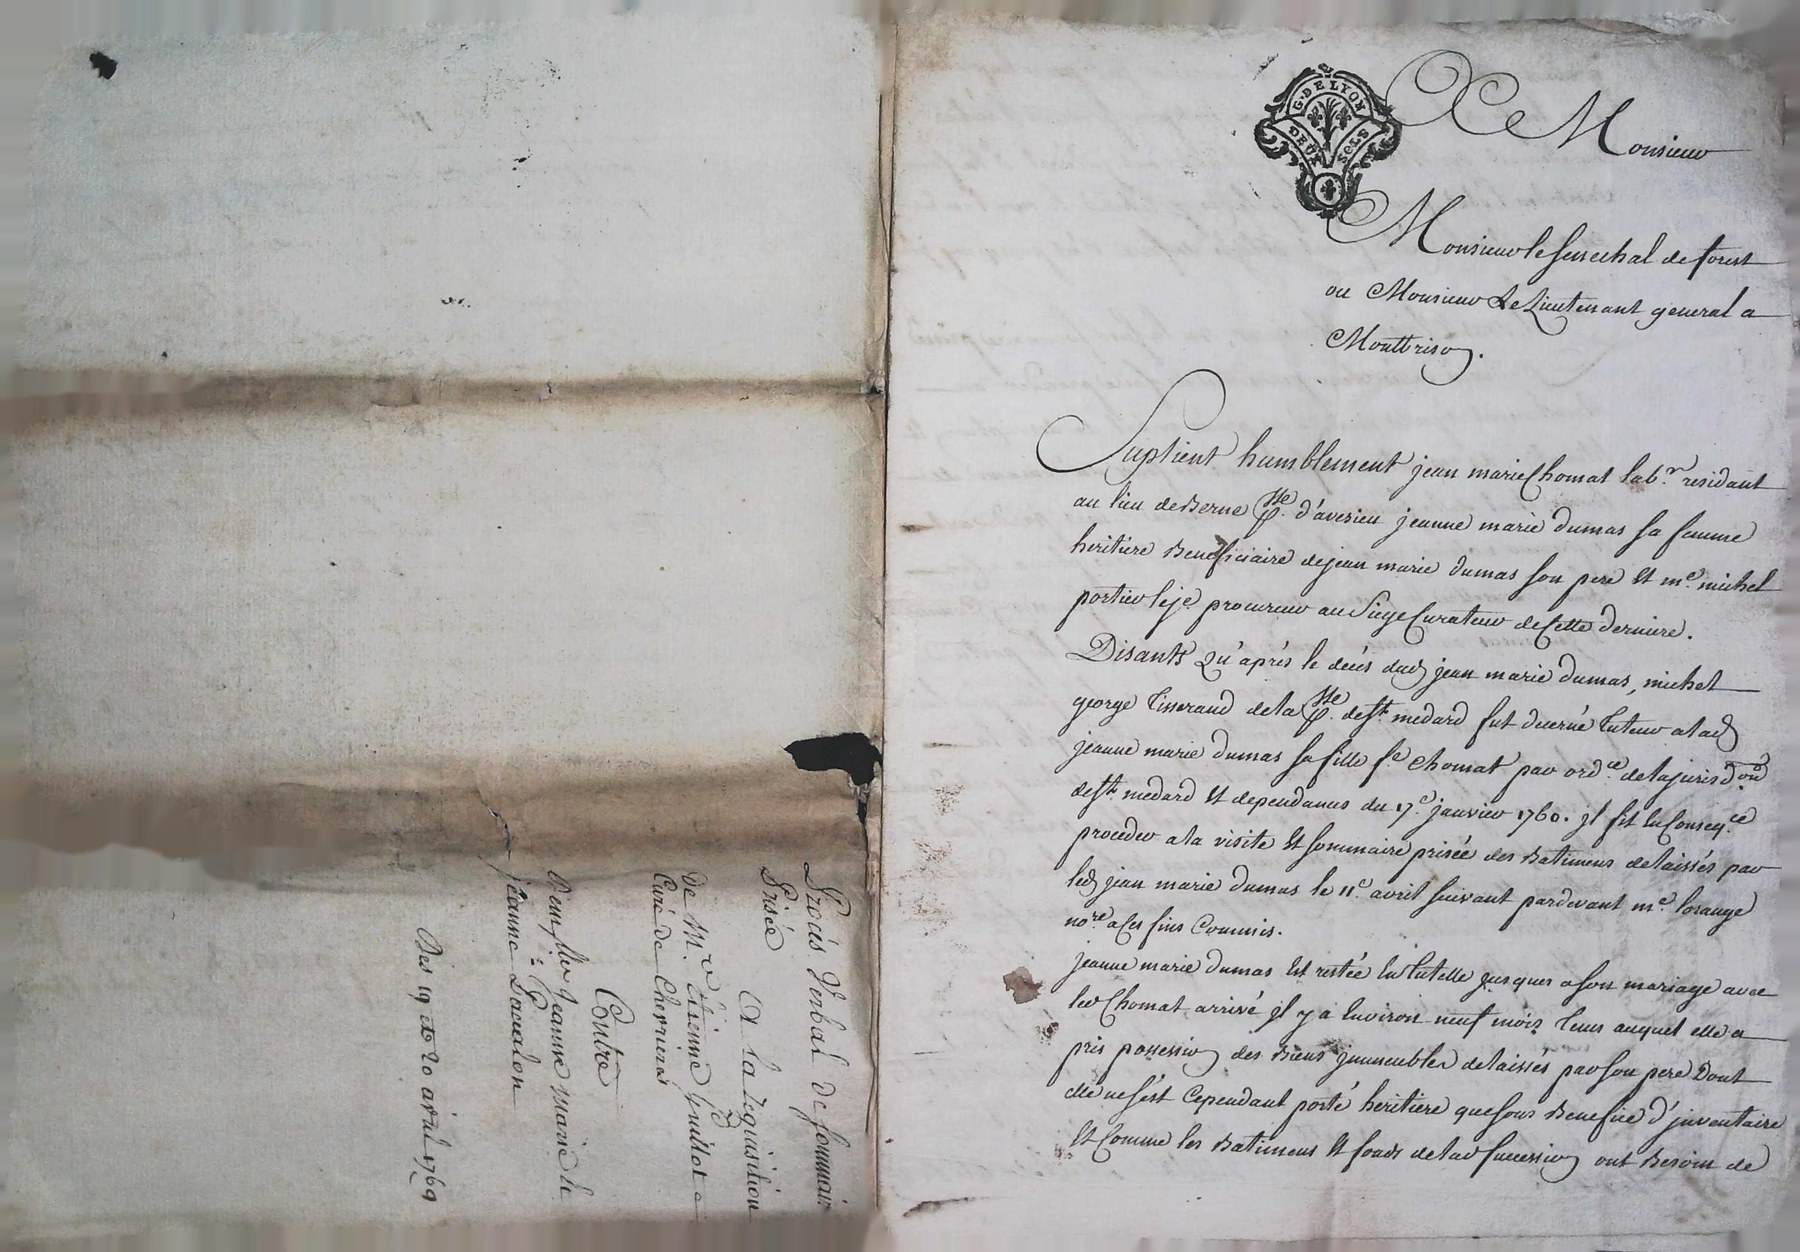 Procés Verbal de sommaire
Prisée
A la Requisition
de Mre Etienne Guillot
Curé de Cherrieres
Contre
Jeanne Marie
Jeanne
Des 19 et 20 avril 1769
G. DE LYON
DEUX SOLS
A Monsieur
Monsieur le Senechal de forest
ou Monsieur Le Lieutenant general a
Montbrison.
Suplient humblement jean marie Chomat labr. residant
au lieu de Berne psse. d'avesieu jeanne marie dumas sa femme
heritiere Beneficiaire de jean marie dumas son pere Et me. michel
portier procureur au Siege Curateur de Cette derniere.
Disants Qu'aprés le decés dud jean marie dumas, michel
george Tisserand de la psse. de st. medard fut decerné Tuteur a lad
jeanne marie dumas sa fille fe Chomat par ordce. de la jurisdon
de st. medard Et dependances du 17e janvier 1760. jl fit En Conseqce.
proceder a la visite Et sommaire prisée des Batimens delaissés par
led jean marie dumas le 11e. avril suivant pardevant me. lorange
nore. a Ces fins Commis.
jeanne marie dumas Est restée En tutelle jusques a son mariage avec
led Chomat arrivé jl y a Environ neuf mois Tems auquel elle a
pris possession des Biens jmmeubles delaissés par son pere Dont
elle ne s'est Cependant porté heritiere que sous Benefice d'jnventaire
Et Comme les Batimens Et fonds de lad Succession ont Besoin de